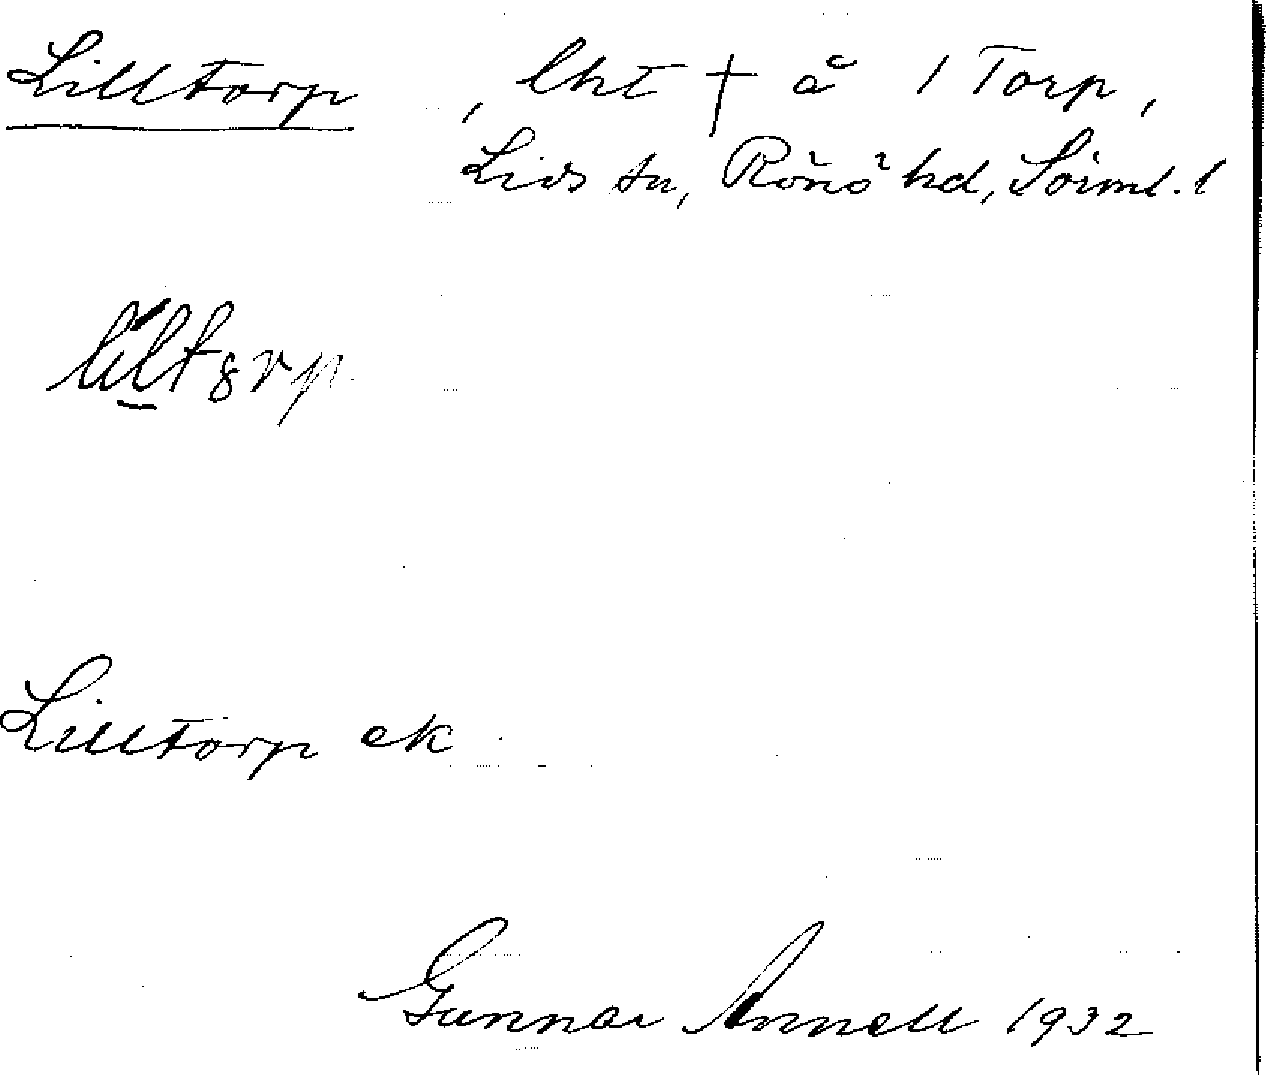 Lilltorp, lht † å 1 Torp,
Lids sn, Rönö hd, Sörml. l
Lilltorp ek
Gunnar Annell 1932